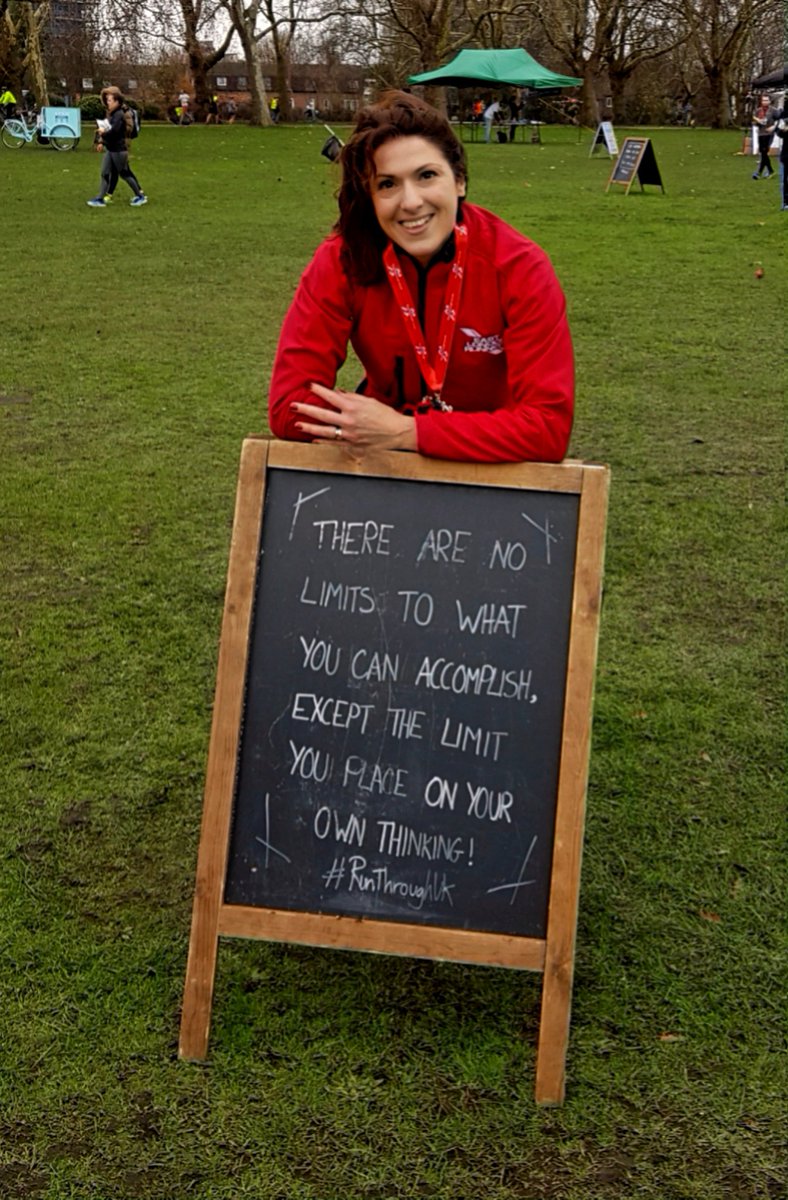 THERE ARE NO
LIMITS TO WHAT
YOU CAN ACCOMPLISH,
EXCEPT THE LIMIT
YOU PLACE ON YOUR
OWN THINKING!
#RunThroughUk